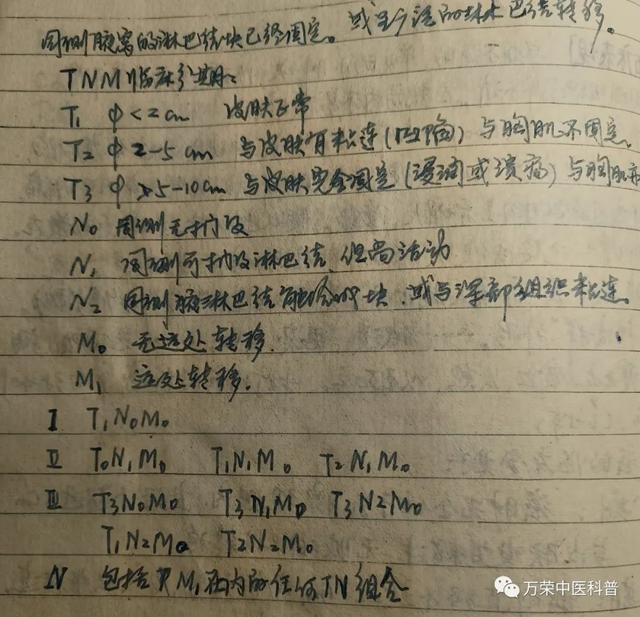 同侧腋窝的淋巴结块已经固定。或至今活的淋巴结转移。
TNM临床分期:
T₁ φ<2cm 皮肤正常
T₂ φ2-5cm 与皮肤有粘连(凹陷)与胸肌不固定。
T₃ φ>5-10cm 与皮肤完全固定(浸润或溃疡)与胸肌
N₀ 同侧无扪及
N₁ 同侧可扪及淋巴结 但尚活动
N₂ 同侧淋巴结融合成块.或与深部组织粘连
M₀ 无远处转移.
M₁ 远处转移.
Ⅰ T₁N₀M₀
Ⅱ T₀N₁M₀ T₁N₁M₀ T₂N₁M₀
Ⅲ T₃N₀M₀ T₃N₁M₀ T₃N₂M₀
T₁N₂M₀ T₂N₂M₀
Ⅳ 包括M₁在内的任何TN组合
万荣中医科普